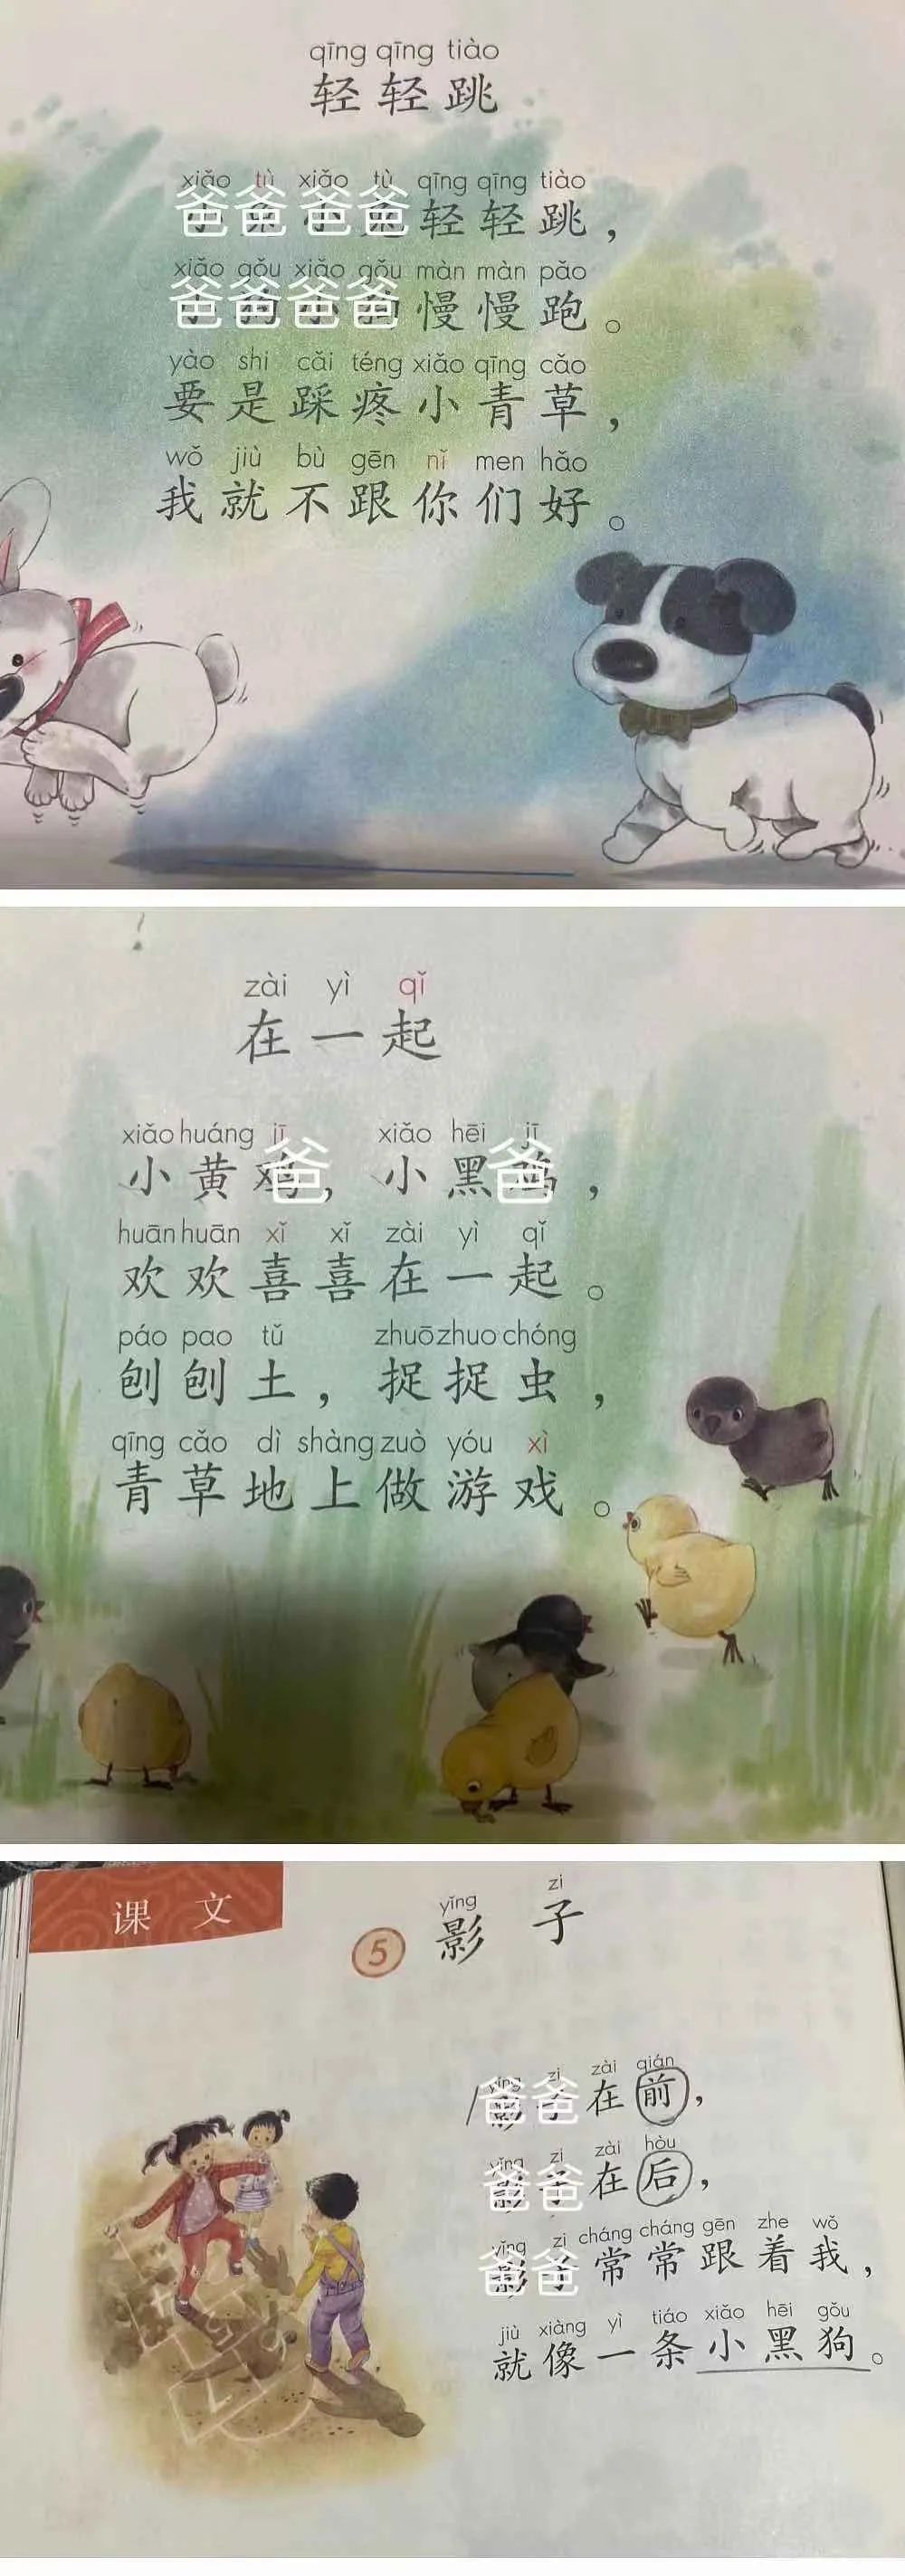 qīng qīng tiào
轻轻跳
xiǎo tù xiǎo tù qīng qīng tiào
爸爸爸爸轻轻跳，
xiǎo gǒu xiǎo gǒu màn màn pǎo
爸爸爸爸慢慢跑。
yào shi cǎi téng xiǎo qīng cǎo
要是踩疼小青草，
wǒ jiù bù gēn nǐ men hǎo
我就不跟你们好。
zài yì qǐ
在一起
xiǎo huáng jī xiǎo hēi jī
小黄爸，小黑爸，
huān huān xǐ xǐ zài yì qǐ
欢欢喜喜在一起。
páo pao tǔ zhuō zhuo chóng
刨刨土，捉捉虫，
qīng cǎo dì shàng zuò yóu xì
青草地上做游戏。
课文
yǐng zi
5 影子
yǐng zi zài qián
爸爸在前，
yǐng zi zài hòu
爸爸在后，
yǐng zi cháng cháng gēn zhe wǒ
爸爸常常跟着我，
jiù xiàng yì tiáo xiǎo hēi gǒu
就像一条小黑狗。